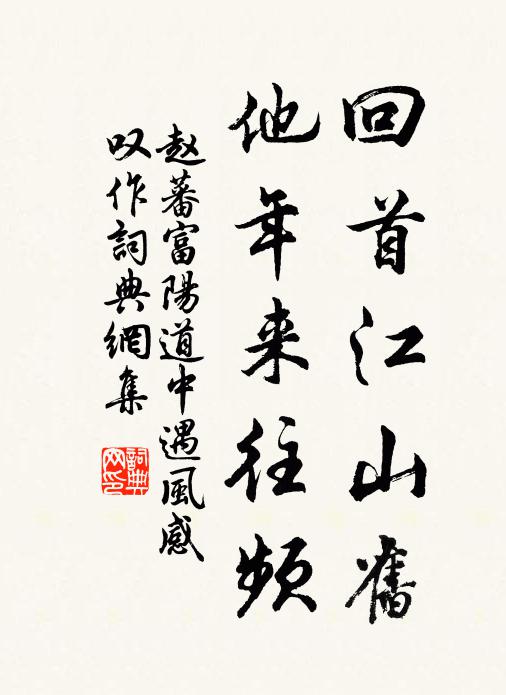 回首江山舊
他年来往頻
赵蕃富陽道中遇風感
叹作詞典網集
詞典
网印